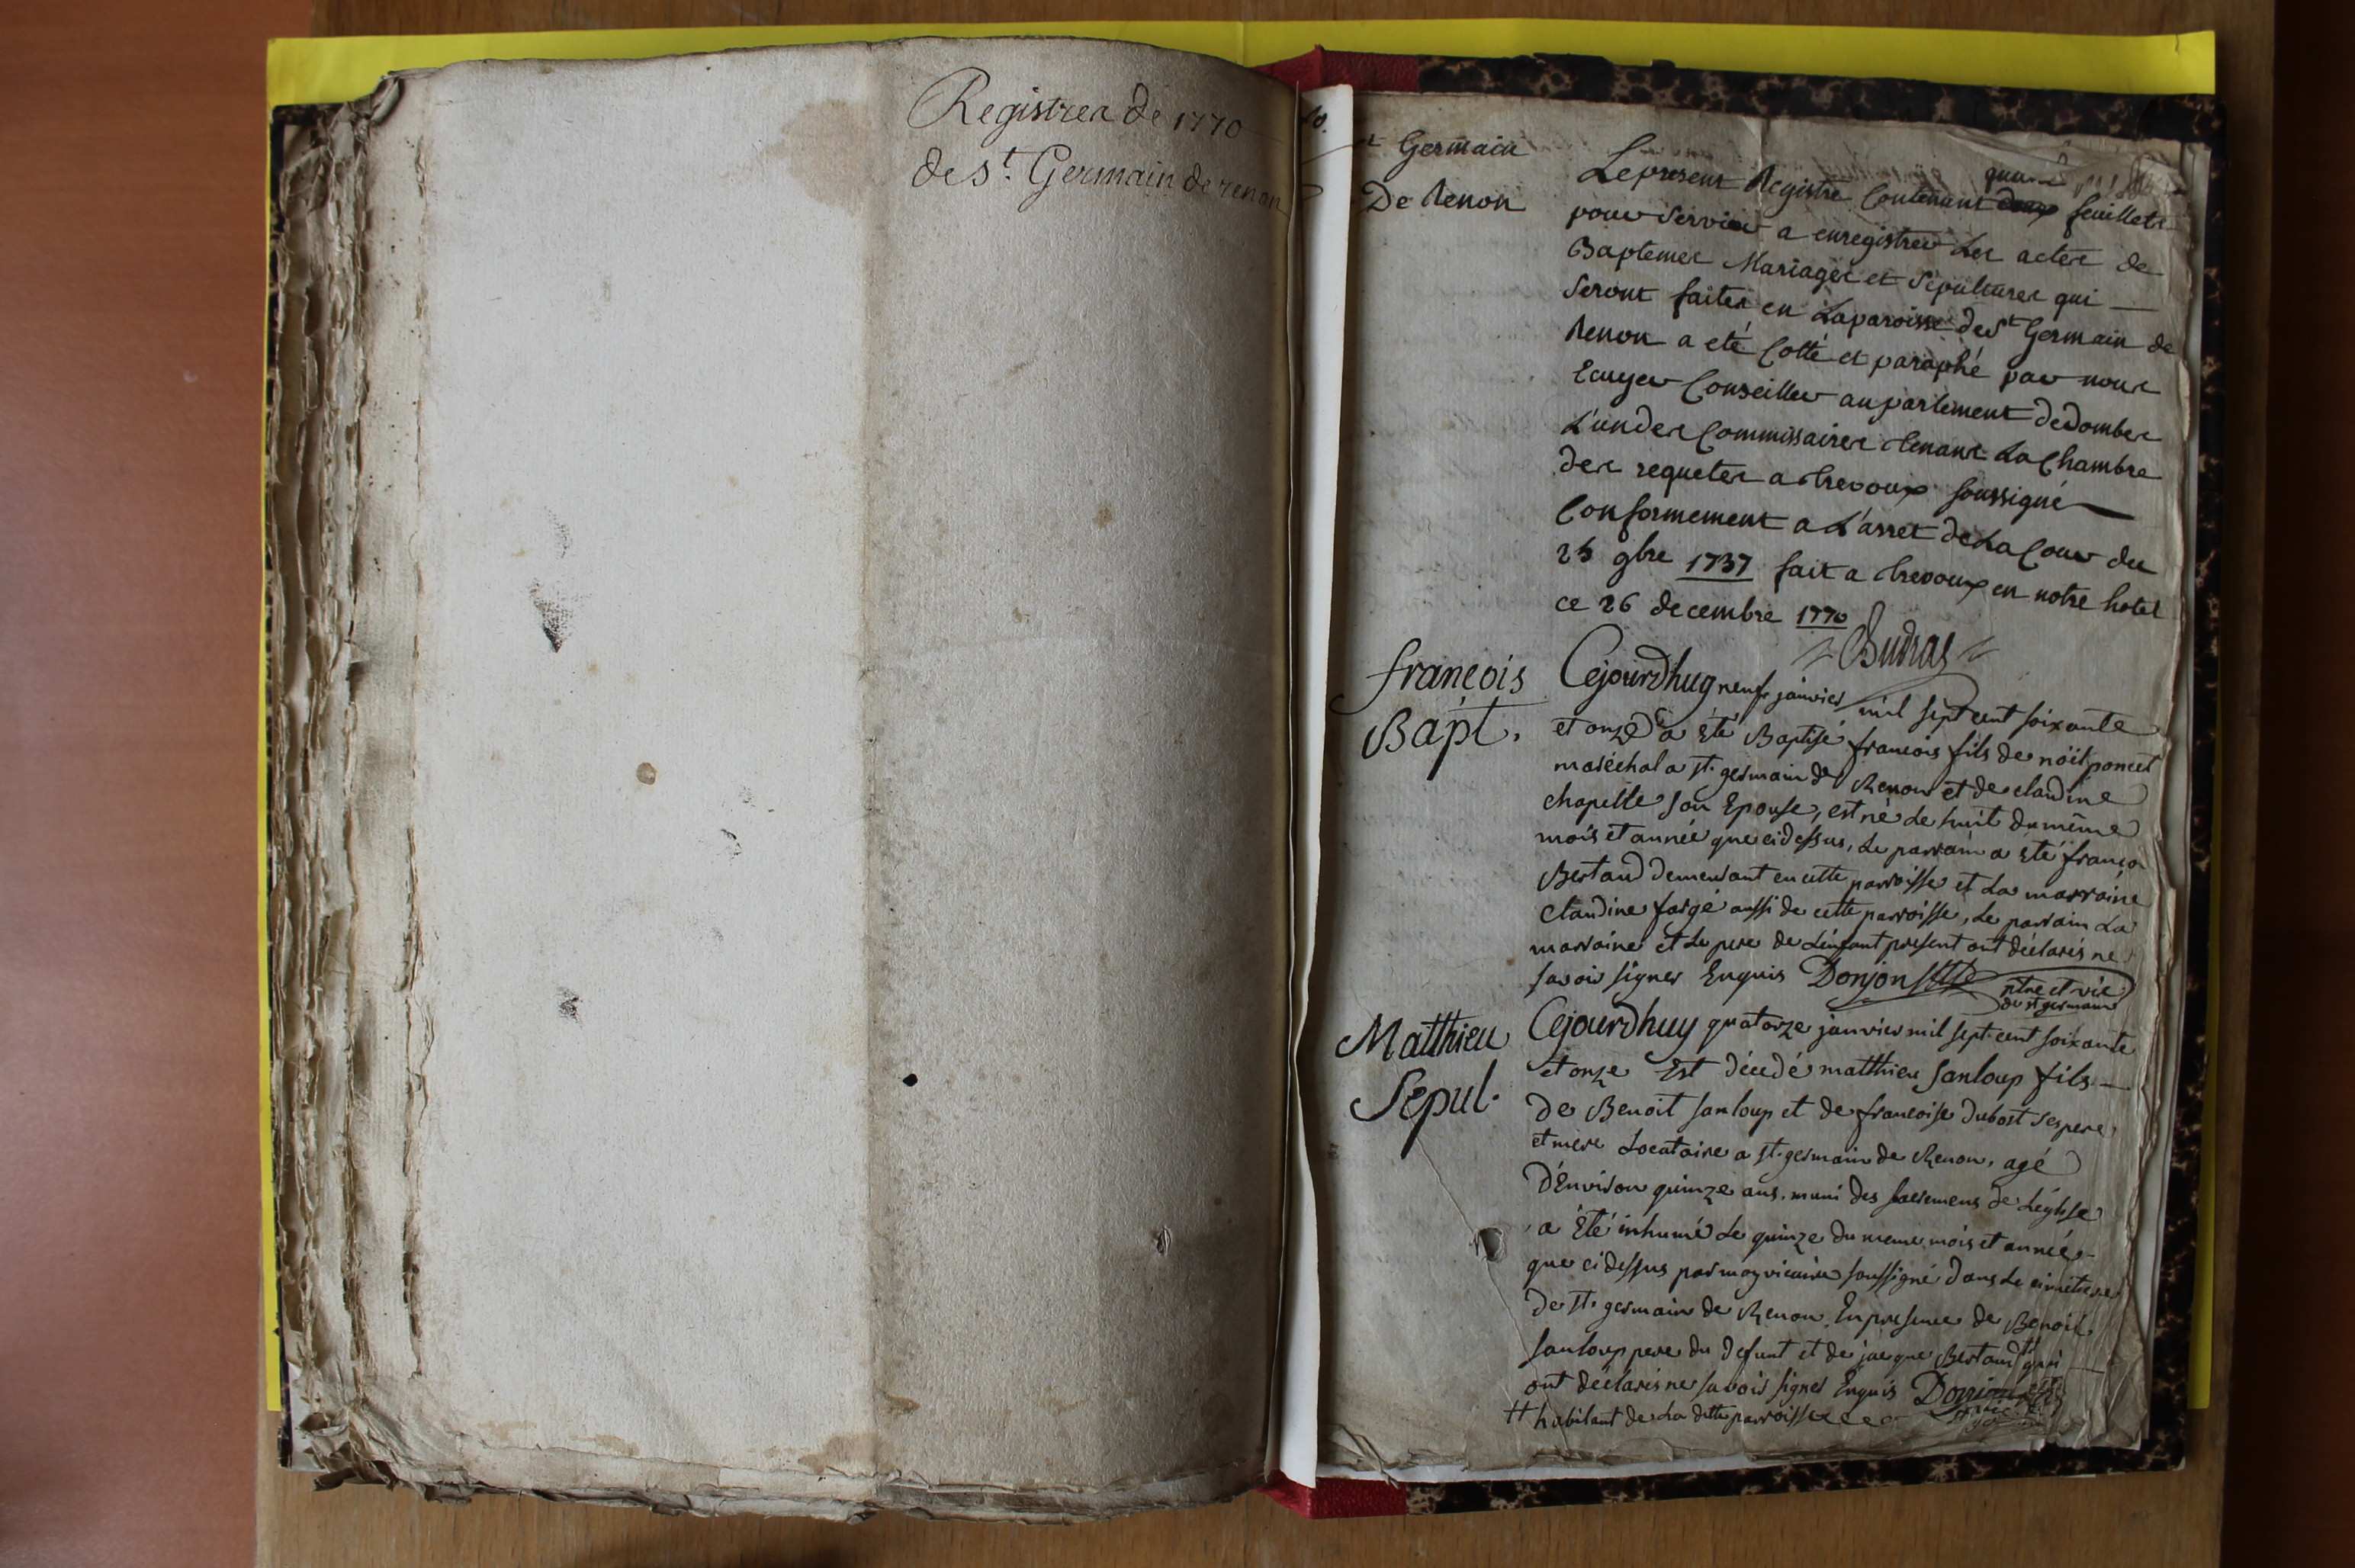 Registres de 1770
de St. Germain de renon
St Germain
De Renon
Le present Registre Contenant quatre feuillets
pour servir a enregistrer Les actes de
Baptemes Mariages et Sepultures qui
Seront faites en La paroisse de St Germain de
Renon a eté Cotté et paraphé par nous
Ecuyer Conseiller au parlement de dombes
L'un des Commissaires tenant La Chambre
des requetes a trevoux soussigné
Conformement a L'arret de La Cour du
25 9bre 1737 fait a trevoux en notre hotel
ce 26 decembre 1770
françois
Bapt.
Cejourdhuy neuf janvier mil sept cent soixante
et onze a Eté Baptisé francois fils de noël poncet
maréchal a st. germain de Renon et de claudine
chapelle son Epouse, est né Le huit du même
mois et année que cidessus, Le parrain a Eté françois
Bertaud demeurant en cette parroisse et La marraine
Claudine fargé aussi de cette parroisse, Le parrain La
marraine et Le pere de L'enfant present ont déclarés ne
savoir signer Enquis Donjon ptre et vic.
de st germain
Matthieu
Sepul.
Cejourdhuy quatorze janvier mil sept cent soixante
et onze Est décédé matthieu Sanloup fils
de Benoit sanloup et de francoise dubost ses pere
et mere Locataire a st. germain de Renon, agé
d'Environ quinze ans, muni des sacremens de L'église
a Eté inhumé Le quinze du meme mois et année
que cidessus par moy vicaire soussigné dans Le cimetiere
de st. germain de Renon. En presence de Benoit
sanloup pere du defunt et de jacque Bertaud # qui
ont déclarés ne savoir signer Enquis Donjon
# habitant de La ditte parroisse